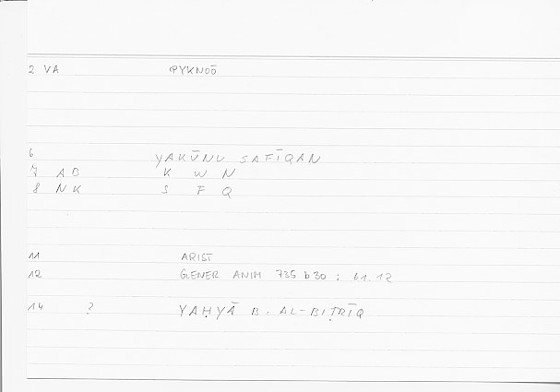 2 VA PYKNOŌ
6 YAKŪNU SAFĪQAN
7 AB K W N
8 NK S F Q
11 ARIST
12 GENER ANIM 735 b 30 : 61.12
14 ? YAḤYĀ B. AL-BIṬRĪQ